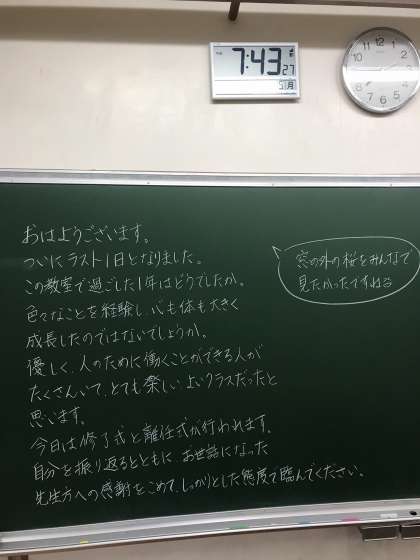 7:43 27
月
おはようございます。
ついにラスト1日となりました。
この教室で過ごした1年はどうでしたか。
色々なことを経験し、心も体も大きく
成長したのではないでしょうか。
優しく、人のために働くことができる人が
たくさんいて、とても楽しいよいクラスだったと
思います。
今日は修了式と離任式が行われます。
自分を振り返るとともに、お世話になった
先生方への感謝をこめて、しっかりとした態度で臨んでください。
窓の外の桜をみんなで
見たかったですねぇ